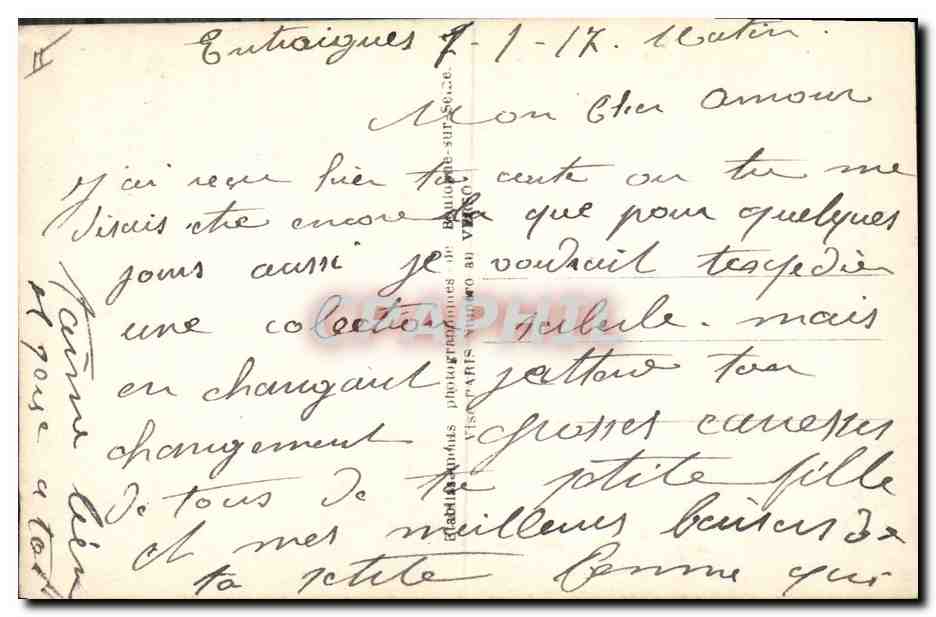 Entraigues 7-1-17. Matin.
Mon Cher amour
J'ai reçu hier ta carte ou tu me
disais etre encore la que pour quelques
jours aussi je voudrait texpedier
une colection mais
en changant jattend ton
changement grosses caresses
de tous de ta ptite fille
et mes meilleurs baisers de
ta ptite femme qui
t'aime bien
et pense a toi
Etablissements photographiques de Boulogne-sur-Seine.
Visé PARIS Numéro au VERSO.
CPAPHIL